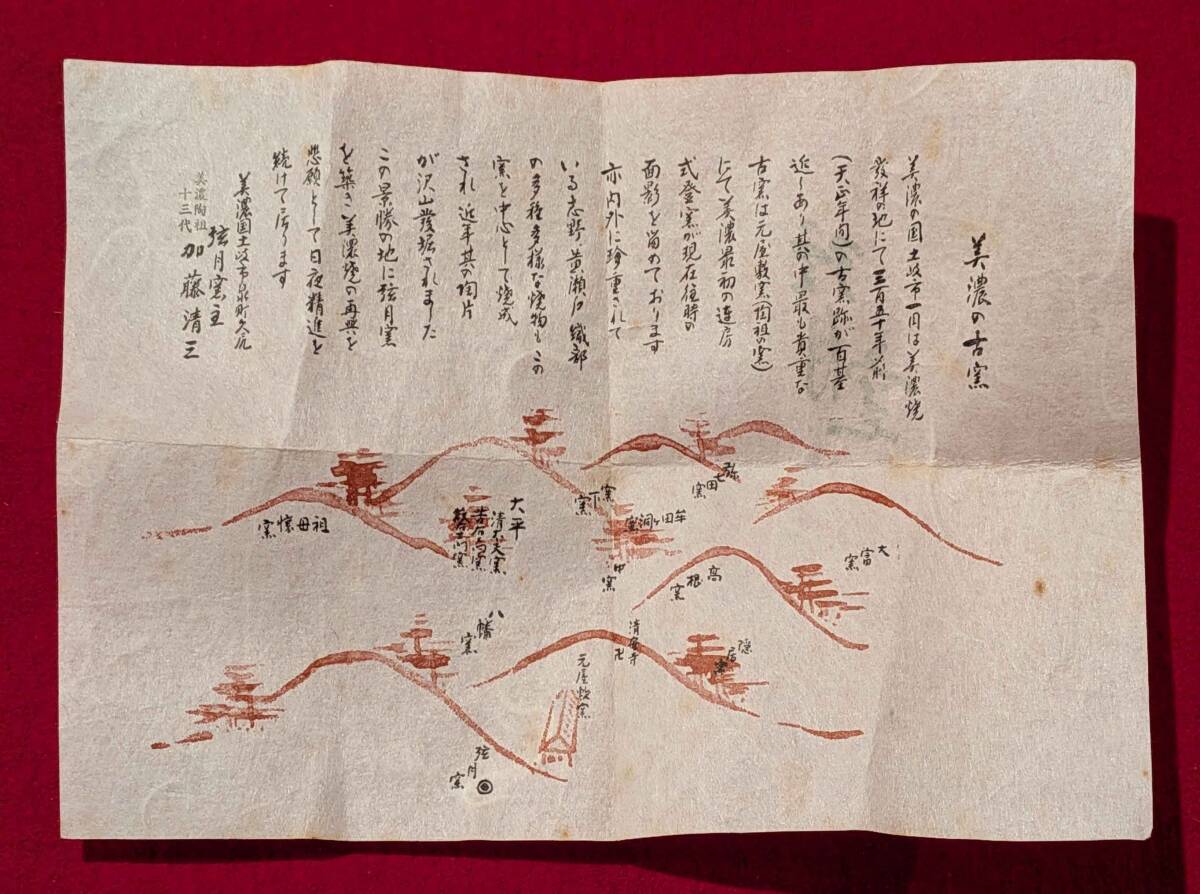 美濃の古窯
美濃の国土岐市一円は美濃焼
発祥の地にて三百五十年前
(天正年間)の古窯跡が百基
近くあり其の中最も貴重な
古窯は元屋敷窯(陶祖の窯)
にて美濃最初の連房
式登窯が現在往時の
面影を留めております
亦内外に珍重されて
いる志野黄瀬戸織部
の多種多様な焼物もこの
窯を中心として焼成
され近年其の陶片
が沢山發堀されました
この景勝の地に弦月窯
を築き美濃焼の再興を
悲願として日夜精進を
続けて居ります
美濃国土岐市泉町久尻
弦月窯主
美濃陶祖
十三代
加藤清三
弥七田窯
窯下窯
牟田ヶ洞窯
大平
清太夫窯
祖母懐窯
中窯
大富窯
高根窯
八幡窯
清安寺
卍
隠居窯
元屋敷窯
弦月窯